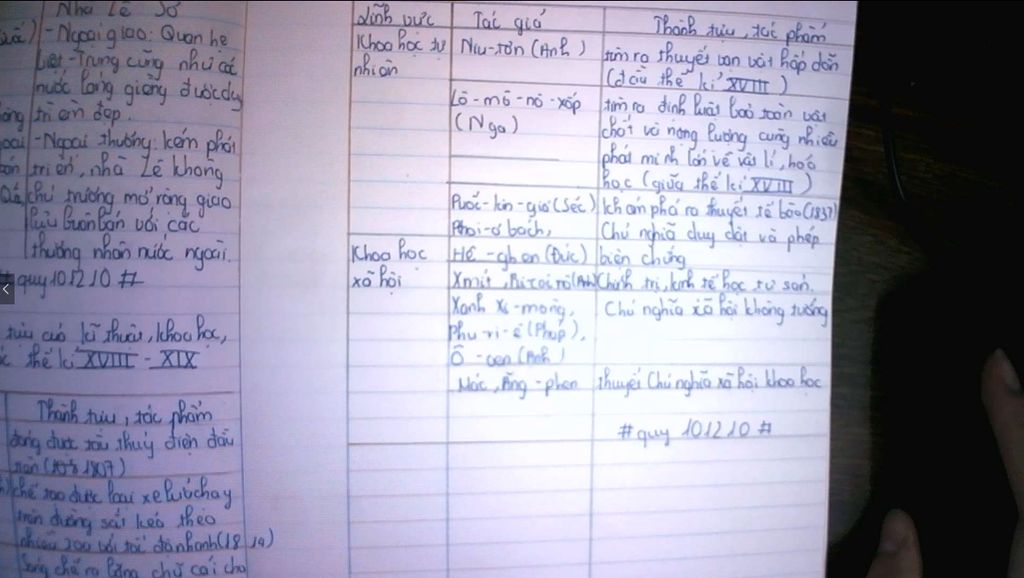 Nhà Lê Sơ
- Ngoại giao: Quan hệ
Việt-Trung cũng như các
nước láng giềng được duy
trì ổn đẹp.
- Ngoại thương: kém phát
triển, nhà Lê không
chủ trương mở rộng giao
lưu buôn bán với các
thương nhân nước ngoài.
#quy 101210 #
tựu của kĩ thuật, khoa học,
thế kỉ XVIII - XIX
Thành tựu, tác phẩm
đóng được tàu thuỷ điện đầu
tiên (1807)
chế tạo được loại xe lửa chạy
trên đường sắt kéo theo
nhiều toa với tốc độ nhanh (1814)
Sáng chế ra bảng chữ cái cho
Lĩnh vực Tác giả Thành tựu, tác phẩm
Khoa học tự Niu-tơn (Anh) tìm ra thuyết vạn vật hấp dẫn
nhiên (đầu thế kỉ XVIII)
Lô-mô-nô-xốp tìm ra định luật bảo toàn vật
(Nga) chất và năng lượng cùng nhiều
phát minh lớn về vật lí, hoá
học (giữa thế kỉ XVIII)
Puốc-kin-giơ (Séc) Khám phá ra thuyết tế bào (1837)
Phoi-ơ bách, Chủ nghĩa duy vật và phép
Khoa học Hê-ghen (Đức) biện chứng
xã hội Xmit, (Anh) Chính trị, kinh tế học tư sản.
Xanh Xi-mông, Chủ nghĩa xã hội không tưởng
Phu-ri-ê (Pháp),
Ô-oen (Anh)
Mác, Ăng-ghen thuyết Chủ nghĩa xã hội khoa học
#quy 101210 #